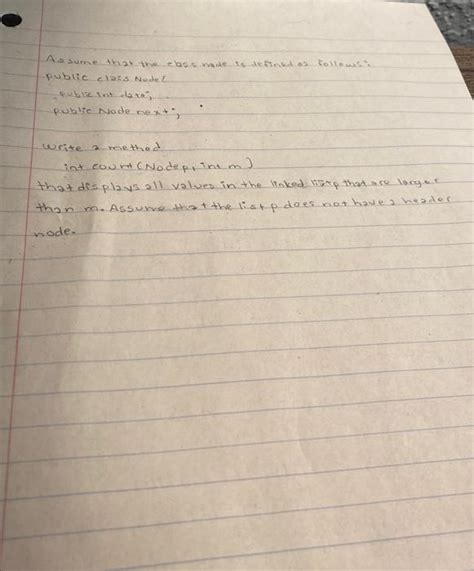 Assume that the class node is defined as follows:
public class Node{
public int data;
public Node next;
write a method
int count(Node p, int m)
that displays all values in the linked list p that are larger
than m. Assume that the list p does not have a header
node.